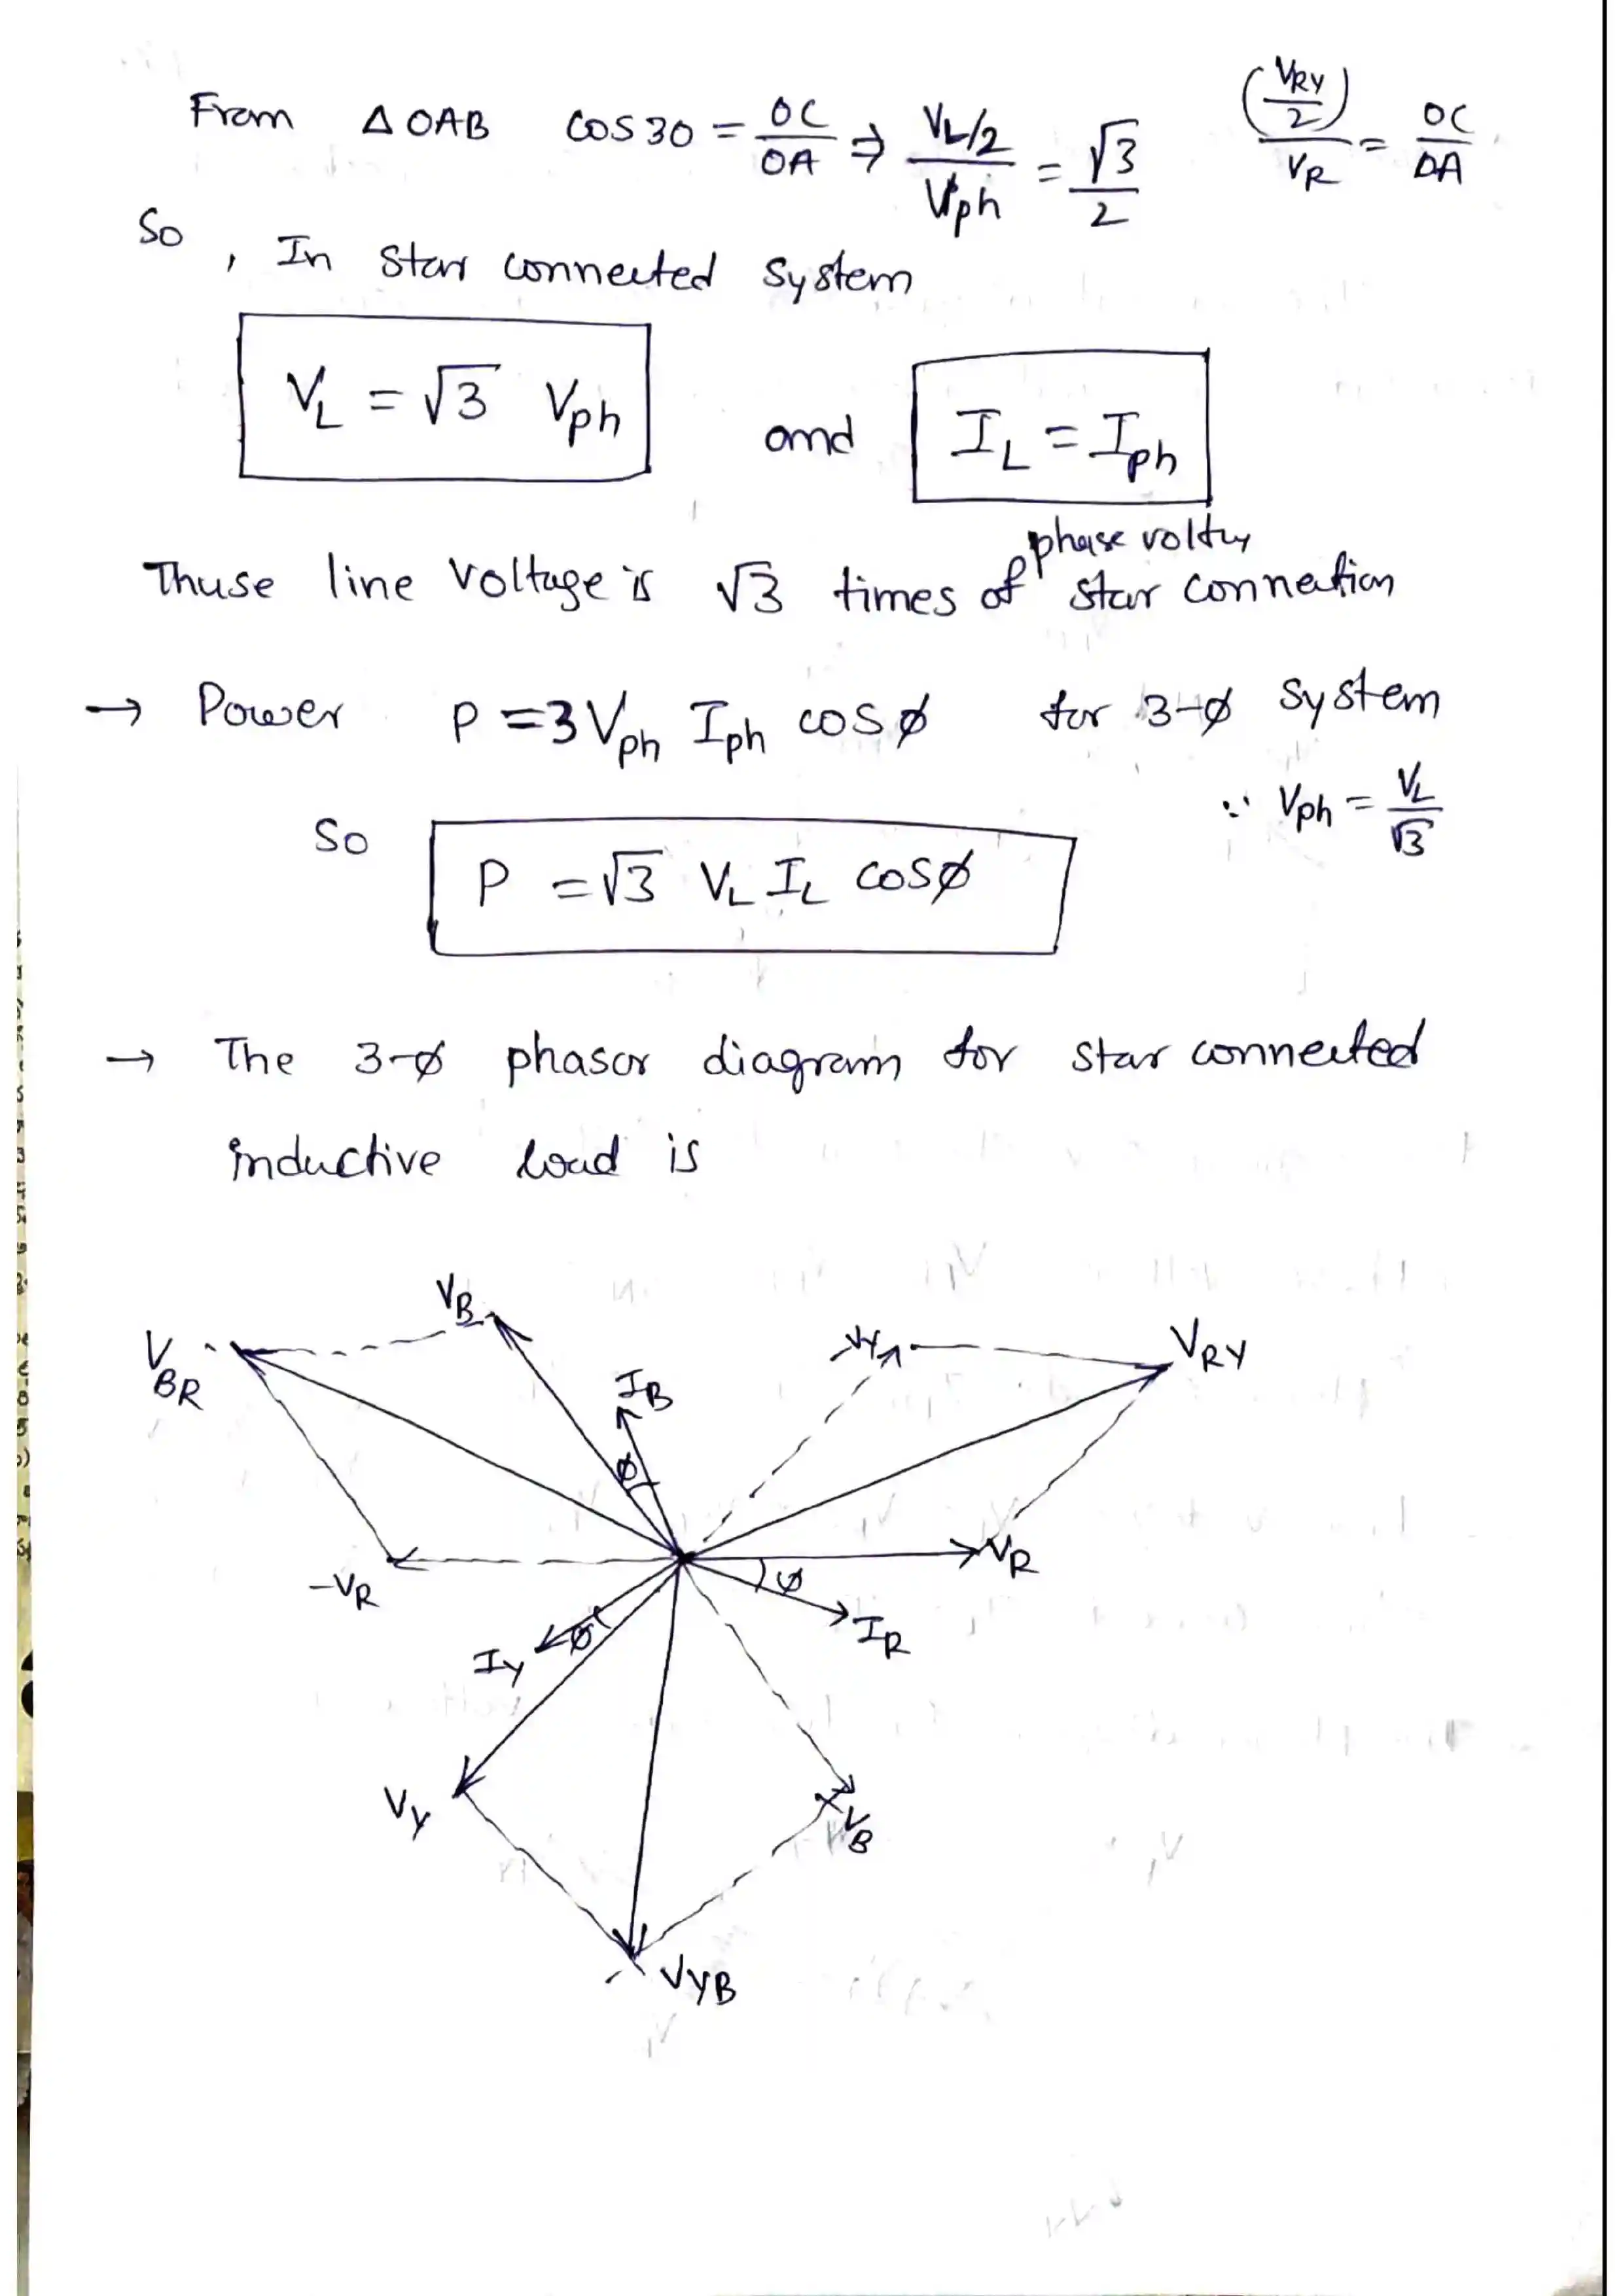 From △OAB cos 30 = OC/OA ⇒ (VL/2)/Vph = √3/2 (VRY/2)/VR = OC/OA
So, In Star connected System
VL = √3 Vph and IL = Iph
phase voltg
Thuse line Voltage is √3 times of star connection
→ Power P = 3 Vph Iph cosφ for 3-φ System
∵ Vph = VL/√3
So P = √3 VL IL cosφ
→ The 3-φ phasor diagram for star connected
inductive load is
VB
VBR
-VY
VRY
IB
φ
VR
-VR
φ
IR
φ
IY
VY
-VB
VYB